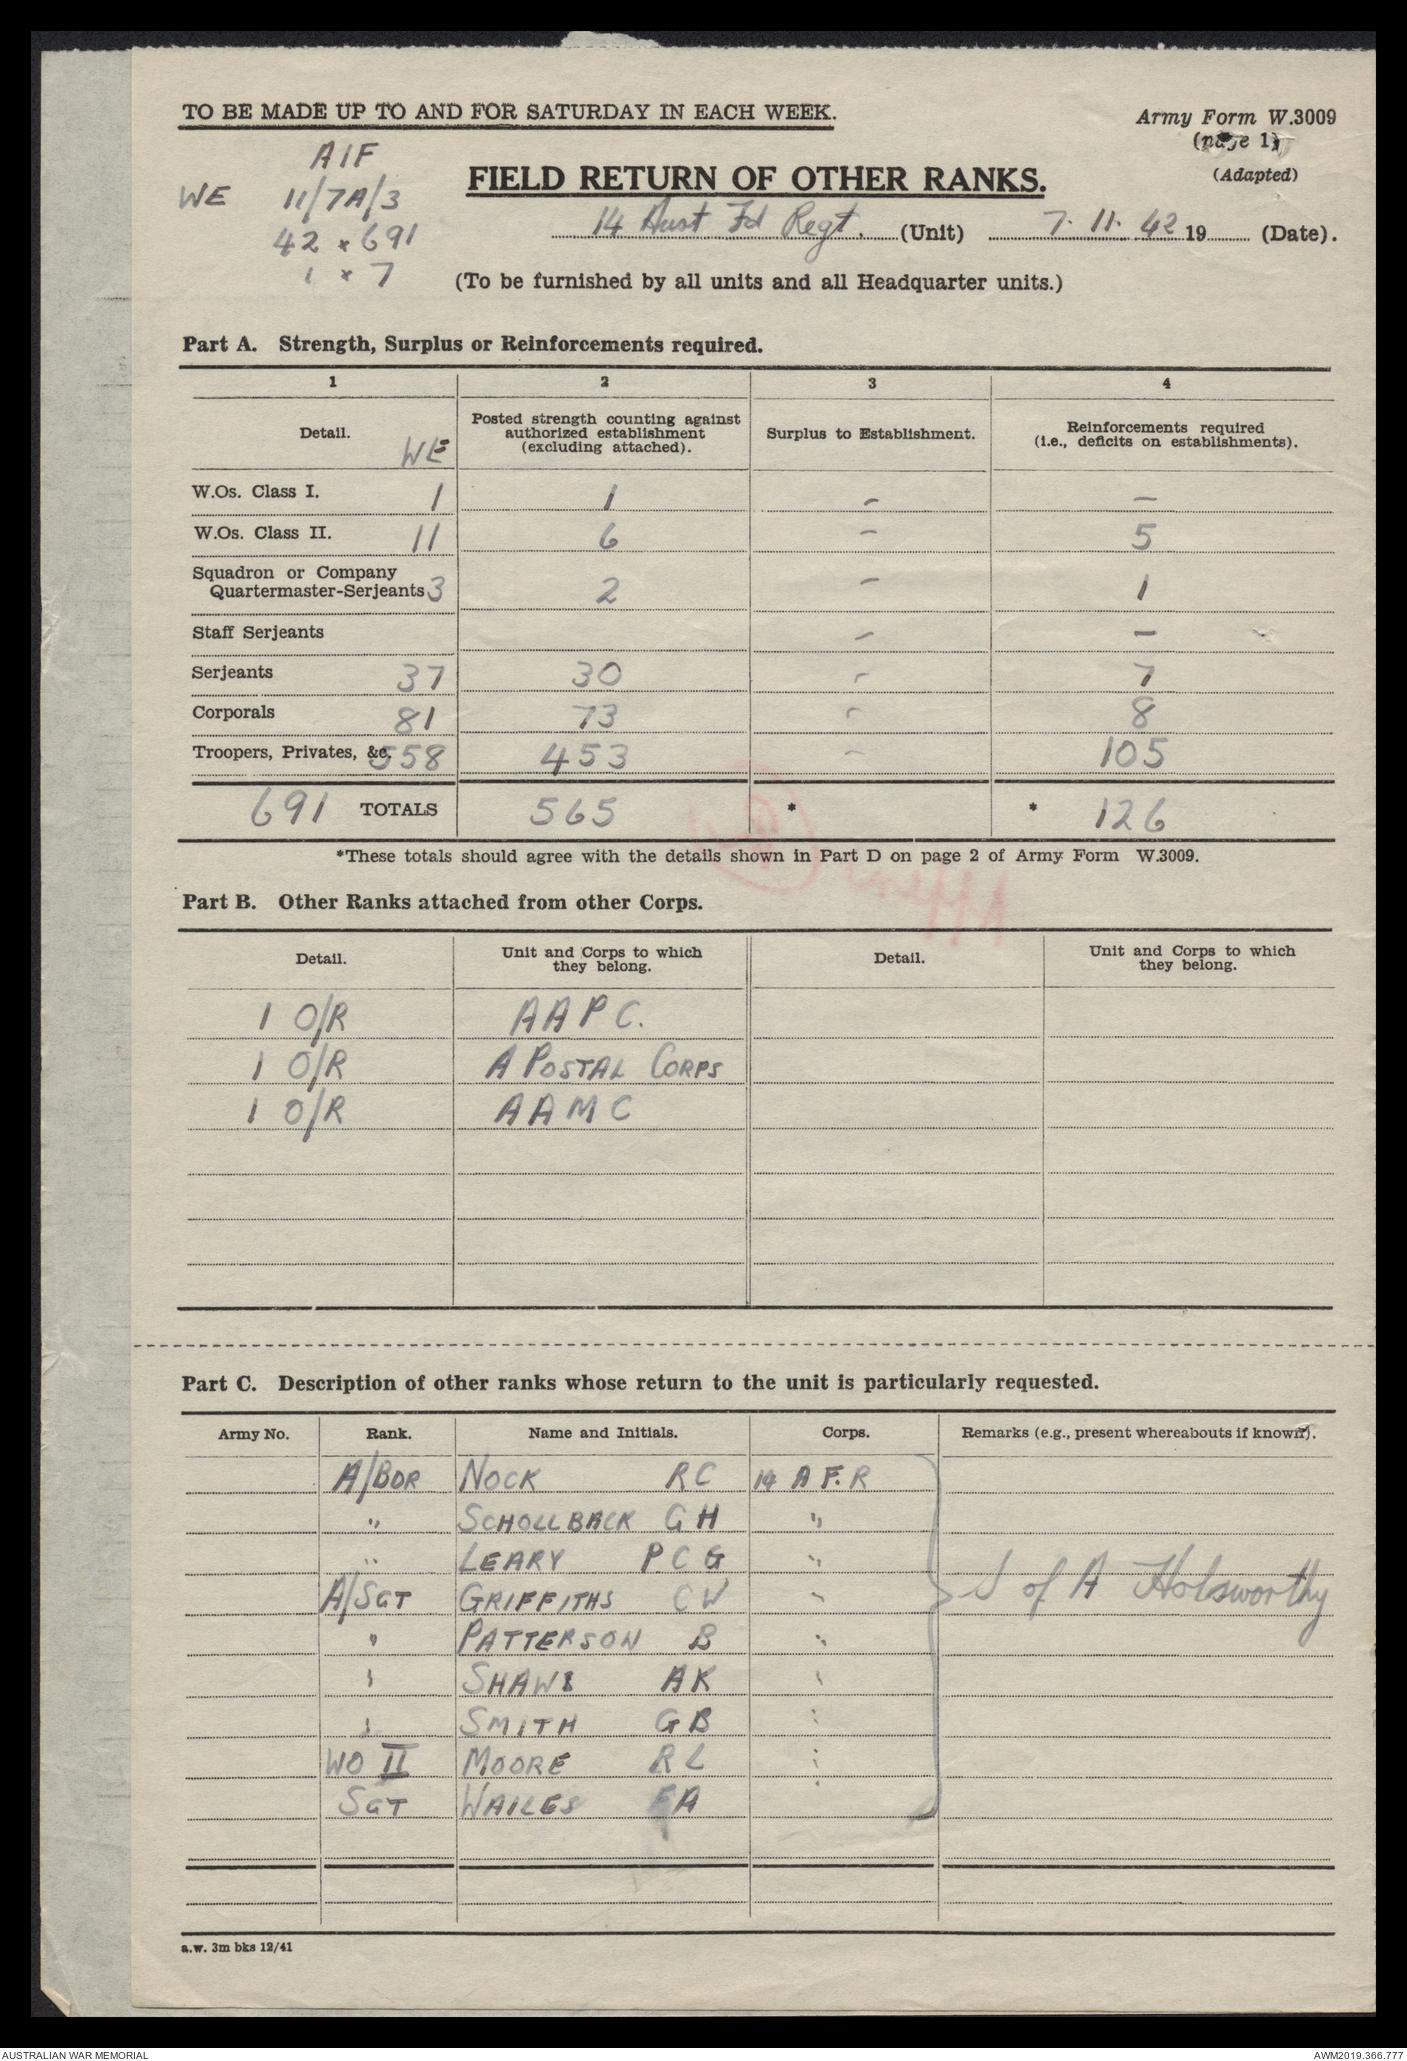 TO BE MADE UP TO AND FOR SATURDAY IN EACH WEEK.
Army Form W.3009
(page 1)
(Adapted)
AIF
WE 11/7A/3
42 x 691
1 x 7
FIELD RETURN OF OTHER RANKS.
14 Aust Fd Regt. (Unit) 7. 11. 42 19 (Date).
(To be furnished by all units and all Headquarter units.)
Part A. Strength, Surplus or Reinforcements required.
1 2 3 4
Detail. WE Posted strength counting against authorized establishment (excluding attached). Surplus to Establishment. Reinforcements required (i.e., deficits on establishments).
W.Os. Class I. 1 1 - -
W.Os. Class II. 11 6 - 5
Squadron or Company
Quartermaster-Serjeants 3 2 - 1
Staff Serjeants - -
Serjeants 37 30 - 7
Corporals 81 73 - 8
Troopers, Privates, &c. 558 453 - 105
691 TOTALS 565 * * 126
*These totals should agree with the details shown in Part D on page 2 of Army Form W.3009.
Part B. Other Ranks attached from other Corps.
Detail. Unit and Corps to which they belong. Detail. Unit and Corps to which they belong.
1 O/R AAPC.
1 O/R A POSTAL CORPS
1 O/R AAMC
Part C. Description of other ranks whose return to the unit is particularly requested.
Army No. Rank. Name and Initials. Corps. Remarks (e.g., present whereabouts if known).
A/BDR NOCK RC 14 A F.R
" SCHOLLBACK GH "
" LEARY P C G "
A/SGT GRIFFITHS CW " S of A Holsworthy
" PATTERSON B "
" SHAW AK "
" SMITH GB "
WO II MOORE RL "
SGT WAILES FA "
a.w. 3m bks 12/41
AUSTRALIAN WAR MEMORIAL
AWM2019.366.777